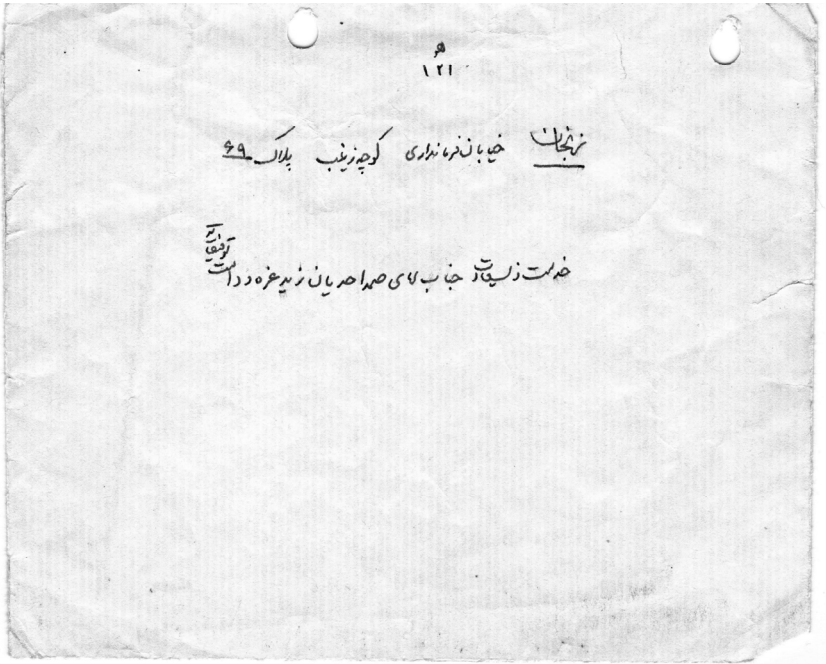 هو
۱۲۱
زنجان خیابان فرمانداری کوچه زینب پلاک ۶۹
خدمت ذیسعادت جناب آقای صمد احدیان زید عزه و دامت توفیقاته